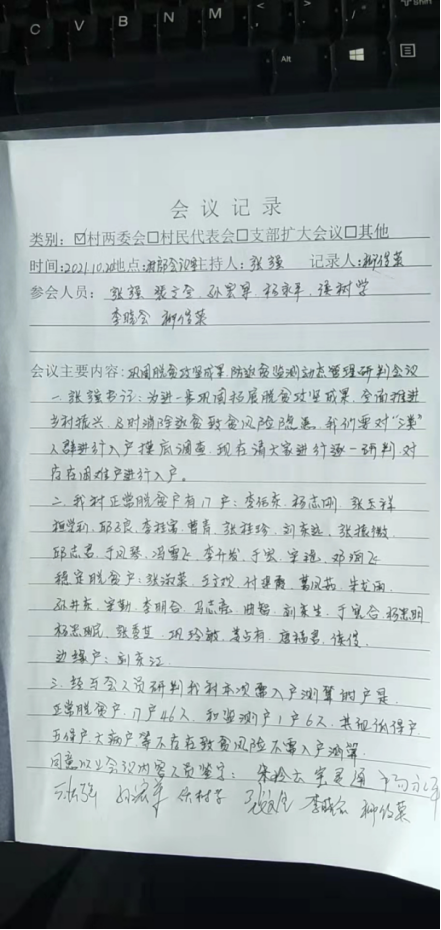 C V B N M
Alt
会议记录
类别：☑村两委会□村民代表会□支部扩大会议□其他
时间：2021.10.20地点：村部会议室主持人：张强 记录人：柳俊荣
参会人员：张强 张文全 孙宏军 杨永平 侯树学
李晓会 柳俊荣
会议主要内容：巩固脱贫攻坚成果，防返贫监测动态管理研判会议
一、张强书记：为进一步巩固拓展脱贫攻坚成果，全面推进
乡村振兴，及时消除返贫致贫风险隐患。我们要对“三类”
人群进行入户摸底调查，现在请大家进行逐一研判，对
存在困难户进行入户。
二、我村正常脱贫户有17户：李佰东 杨志刚 张玉祥
李桂富 曹青 张桂珍 刘东 张振
邱志君 于凤琴 冯雪飞 李开发 于宏 邓闯飞
稳定脱贫户：张淑荣 付建霞 葛凤茹
孙井东 李明合 马志 曲韬 刘东生 于家合 杨忠明
杨忠 巩玲敏 唐福君 佟俊
边缘户：刘东江
三、经与会人员研判我村本次需入户测算的户是
正常脱贫户，17户46人，和监测户1户6人，其他低保户
五保户大病户等不存在致贫风险不需入户测算
同意以上会议内容人员签字：
张强 孙宏军 侯树学 张文全 李晓会 柳俊荣